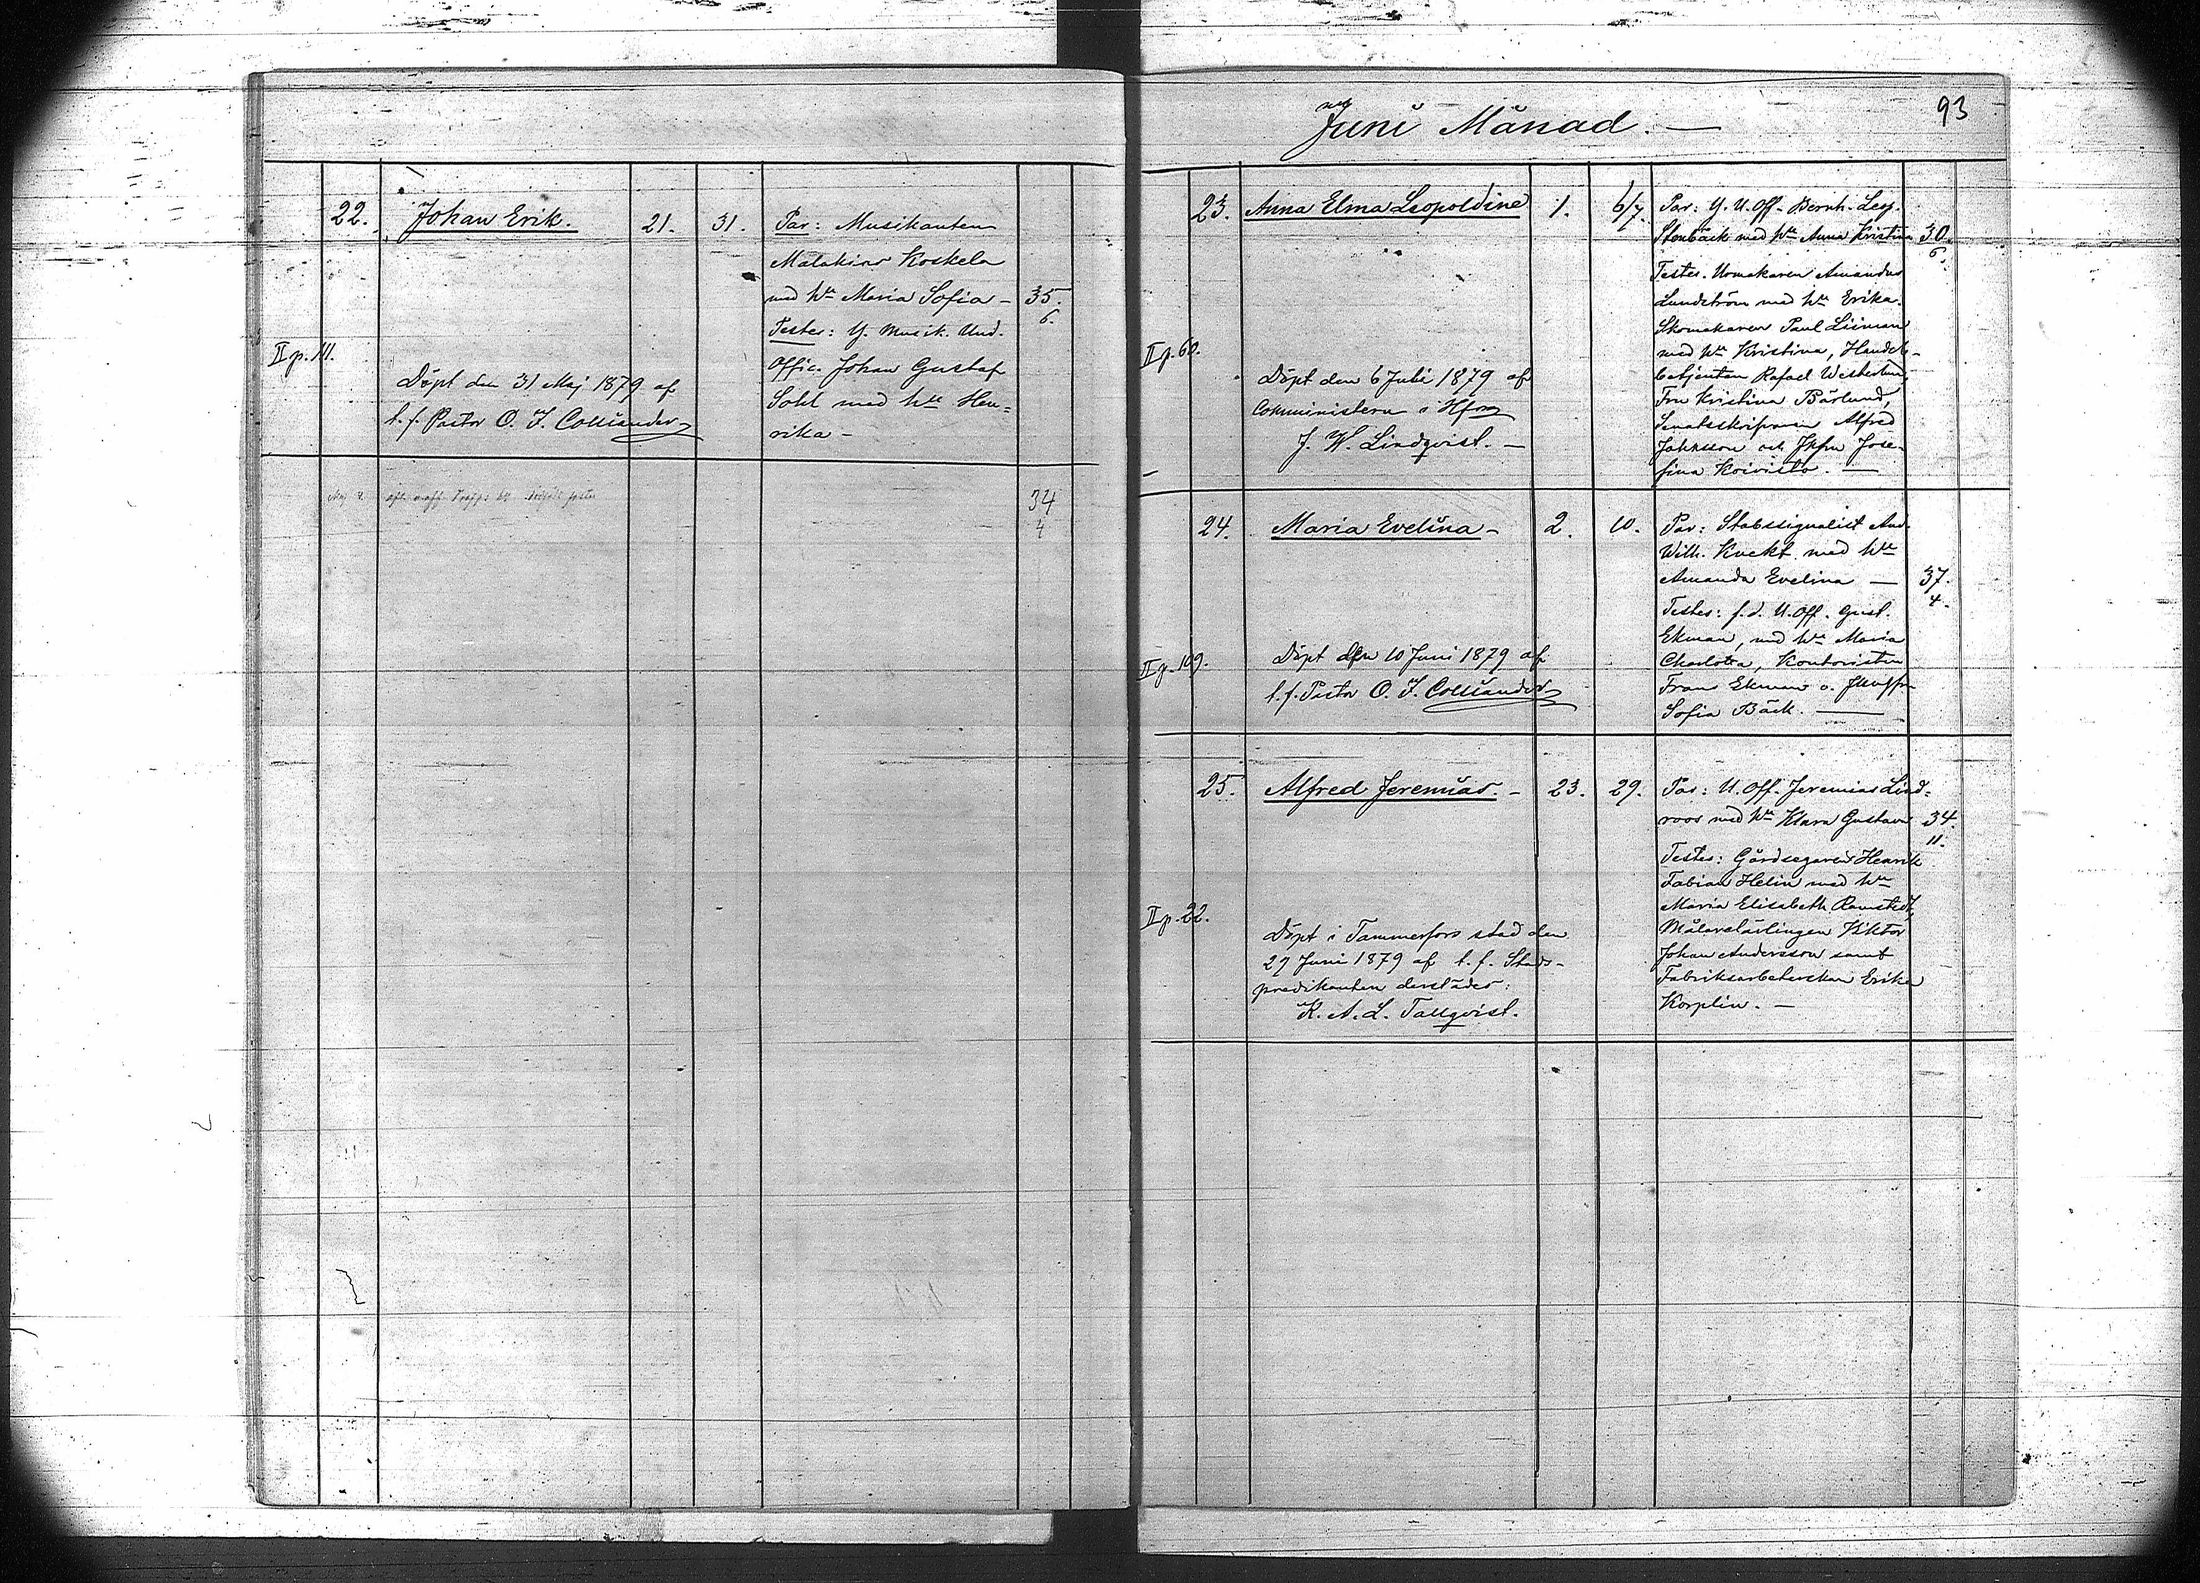 22. Johan Erik. 21. 31. Par: Musikanten
Malakias Koskela
med h:u Maria Sofia — 35.
6.
Testes: Y. Musik. Und.
II p. 111.
Offic. Johan Gustaf
Sohl med h:u Hen-
rika —
Döpt den 31 Maj 1879 af
t. f. Pastor O. I. Colliander
34
4
Juni Månad. —
93
23. Anna Elma Leopoldine 1. 6/7. Par: Y. U. Off. Bernh. Leop.
Stenbäck med h:u Anna Kristina 30.
6.
Testes. Urmakaren Amandus
Lundström med h:u Erika.
Skomakaren Paul Liiman
II p. 60.
med h:u Kristina, Handels-
betjenten Rafael Westerlund,
Fru Kristina Bärlund,
Senatsskrifvaren Alfred
Johnsson och Jkfrn Jose-
fina Koivisto. —
Döpt den 6 Juli 1879 af
Comministern i Hfors
J. W. Lindqvist. —
24. Maria Evelina — 2. 10. Par: Stabssignalist And.
Wilh. Kuckt med h:u
Amanda Evelina — 37.
4.
Testes: f. d. U. Off. Gust.
Ekman, med h:u Maria
Charlotta, Kontoristen
Frans Ekman o. Jungfrn
Sofia Bäck. —
II p. 109.
Döpt den 10 Juni 1879 af
t. f. Pastor O. I. Colliander
25. Alfred Jeremias. — 23. 29. Par: U. Off. Jeremias Lind-
roos med h:u Klara Gustava 34.
11.
Testes: Gårdsegaren Henrik
Fabian Helin med h:u
Maria Elisabeth Ramstedt,
II p. 22.
Målarelärlingen Viktor
Johan Andersson samt
Fabriksarbeterskan Erika
Korplin. —
Döpt i Tammerfors stad den
29 Juni 1879 af t. f. Stads-
predikanten derstädes:
K. A. L. Tallqvist.